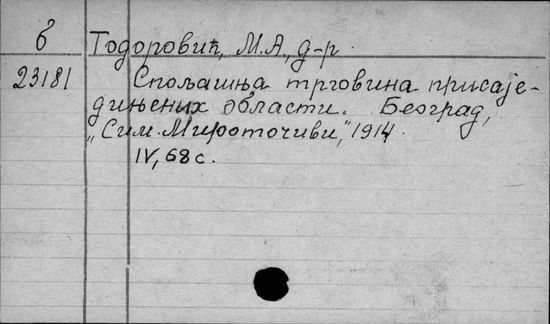 б Тодоровић, М.А., д-р.
23181 Спољашња трговина присаје-
дињених области. Београд,
„Сим. Мироточиви", 1914.
IV, 68 с.